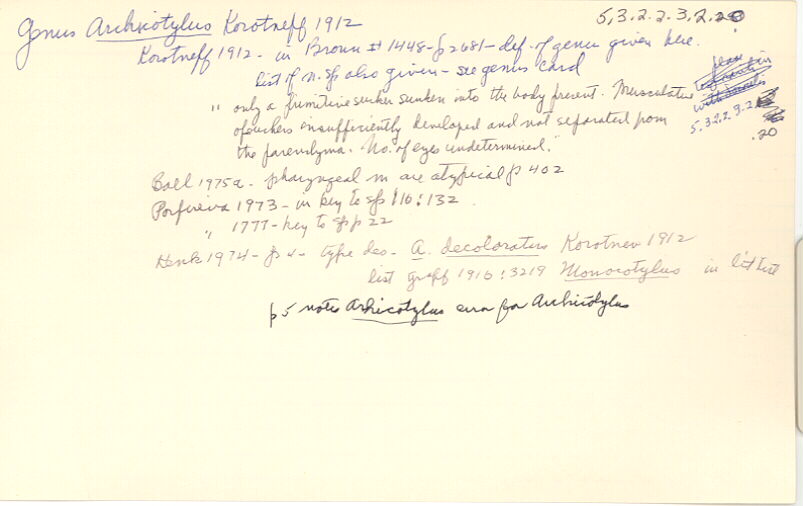 Genus Archicotylus Korotneff 1912
5.3.2.2.3.2.20
Korotneff 1912 - in Bronn # 1448 - p 2681 - def. of genus given here.
List of n. sp also given - see genus card
" only a primitive sucker sunken into the body present. Musculature
of suckers insufficiently developed and not separated from
the parenchyma. No. of eyes undetermined."
5.3.2.2.3.2
.20
Ball 1975a - pharyngeal m are atypical p 402
Porfireva 1973 - in key to sps 116:132
" 1977 - key to sps p 22
Kenk 1974 - p 4 - type des - A. decoloratus Korotnev 1912
list graff 1916:3219 Monocotylus in lit list
p 5 notes Arhicotylus error for Archicotylus